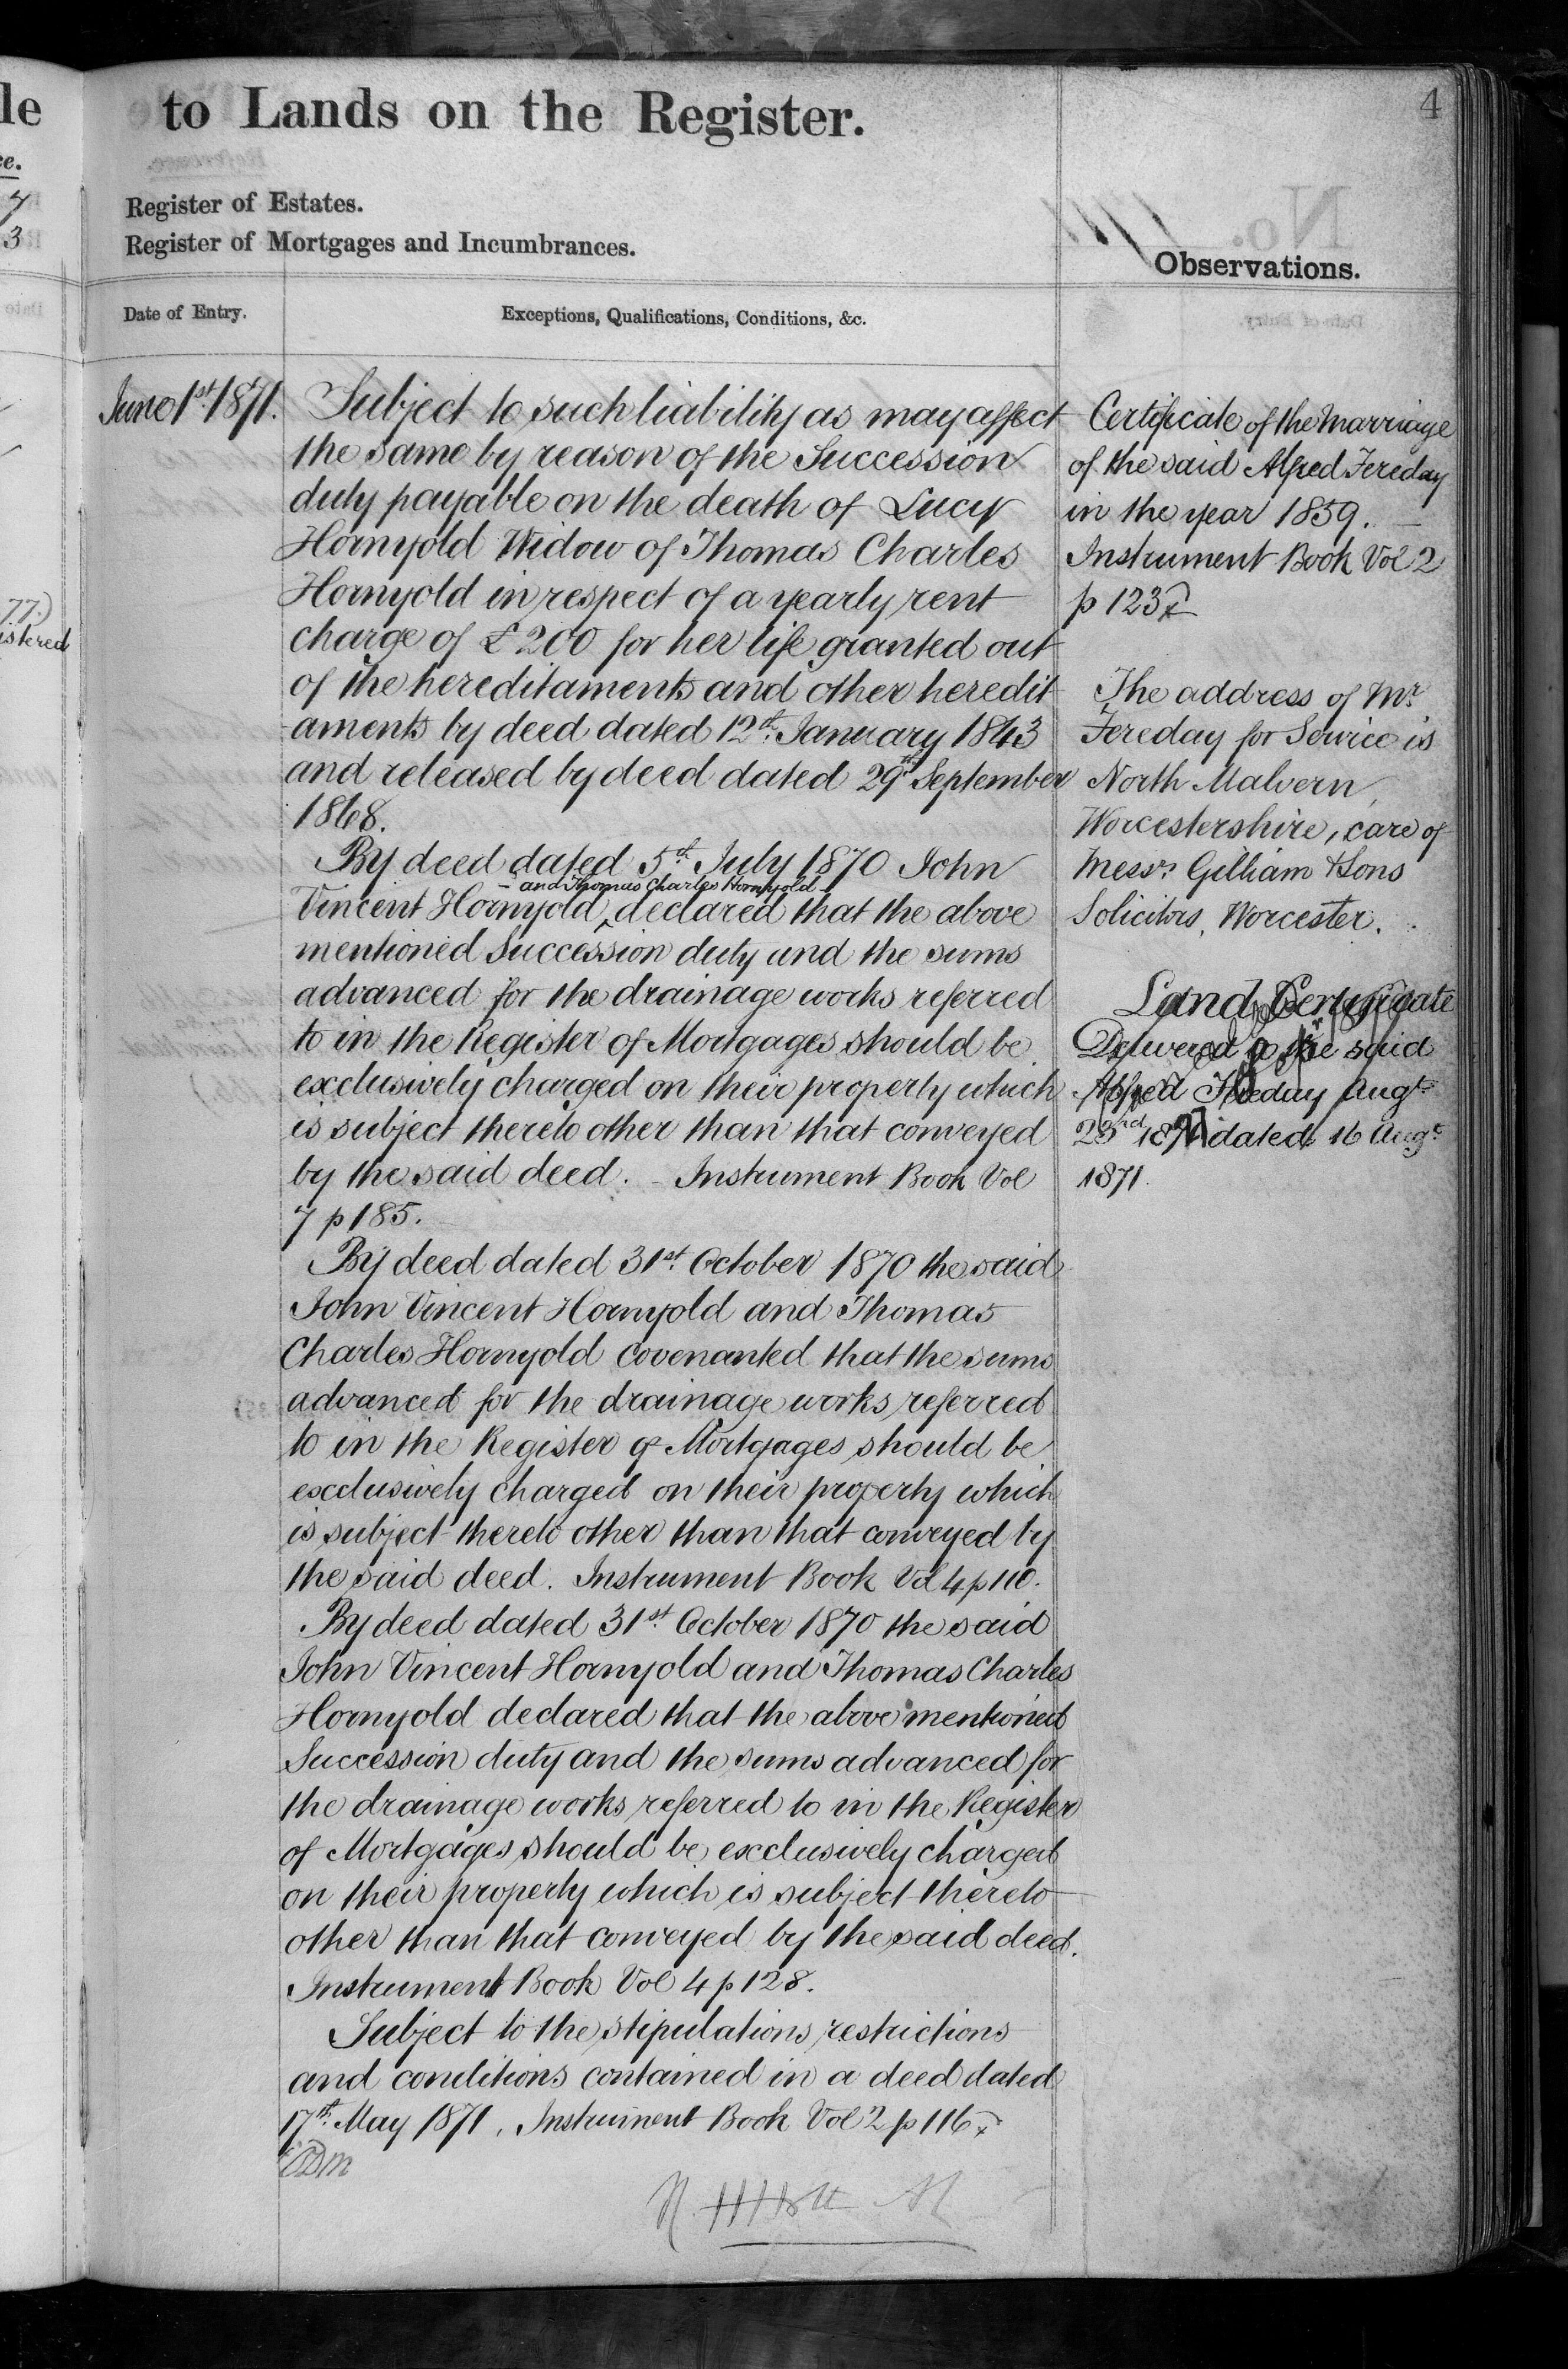 le
to Lands on the Register.
4
ce.
7
3
Register of Estates.
Register of Mortgages and Incumbrances.
No.
Observations.
Date of Entry.
Exceptions, Qualifications, Conditions, &c.
77.)
istered
June 1st 1871.
Subject to such liability as may affect
the same by reason of the Succession
duty payable on the death of Lucy
Hornyold Widow of Thomas Charles
Hornyold in respect of a yearly rent
charge of £200 for her life granted out
of the hereditaments and other heredit
aments by deed dated 12th January 1843
and released by deed dated 29th September
1868.
By deed dated 5th July 1870 John
and Thomas Charles Hornyold
Vincent Hornyold ^ declared that the above
mentioned Succession duty and the sums
advanced for the drainage works referred
to in the Register of Mortgages should be
exclusively charged on their property which
is subject thereto other than that conveyed
by the said deed. - Instrument Book Vol
7 p 185.
By deed dated 31st October 1870 the said
John Vincent Hornyold and Thomas
Charles Hornyold covenanted that the sums
advanced for the drainage works referred
to in the Register of Mortgages should be
exclusively charged on their property which
is subject thereto other than that conveyed by
the said deed. Instrument Book Vol 4 p 110.
By deed dated 31st October 1870 the said
John Vincent Hornyold and Thomas Charles
Hornyold declared that the above mentioned
Succession duty and the sums advanced for
the drainage works referred to in the Register
of Mortgages should be exclusively charged
on their property which is subject thereto
other than that conveyed by the said deed.
Instrument Book Vol 4 p 128.
Subject to the stipulations restrictions
and conditions contained in a deed dated
17th May 1871, Instrument Book Vol 2 p 116
Certificate of the Marriage
of the said Alfred Fereday
in the year 1859. -
Instrument Book Vol 2
p 123
The address of Mr
Fereday for Service is
North Malvern,
Worcestershire, care of
Messrs Gilliam & Sons
Solicitors, Worcester.
Land Certificate
Delivered to the said
Alfred Fereday Augt
23rd 1871 dated 16 Augt
1871.